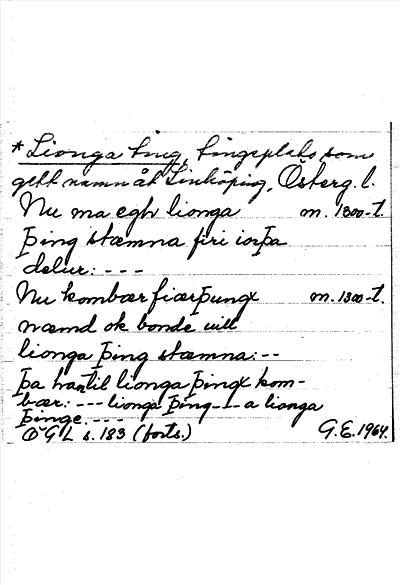 * Lionga ting, tingsplats som
gett namn åt Linköping, Österg. l.
Nu ma egh lionga m. 1300-t.
Þing stæmna firi iorþa
delur: - - -
Nu kombær fiærþungx m. 1300-t.
næmd ok bonde vill
lionga Þing stæmna: - -
Þa han til lionga Þingx kom-
bær: - - - lionga Þing - - - a lionga
Þinge. - - -
ÖGL s. 183 (forts.) G.E. 1964.